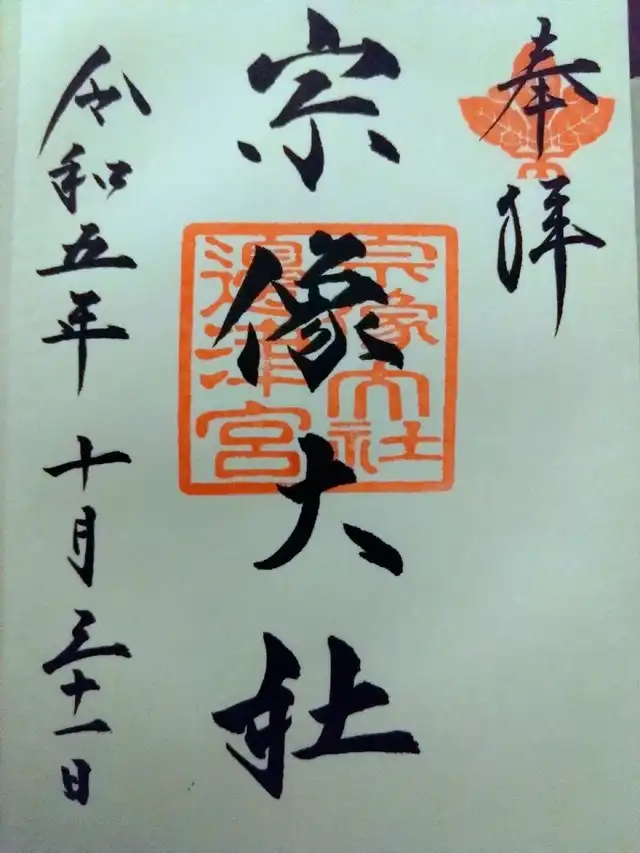 奉拝
宗像大社
宗像大社
邊津宮
令和五年十月三十一日